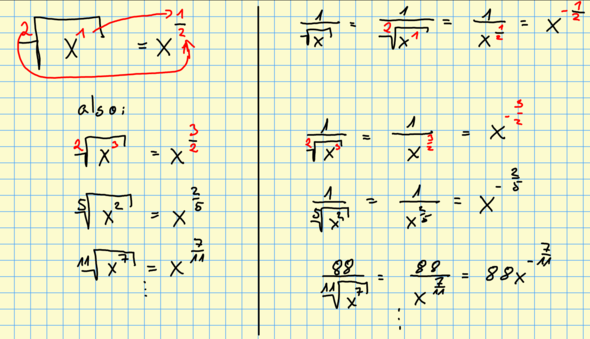 ²√x¹ = x^(1/2)
also:
²√x³ = x^(3/2)
⁵√x² = x^(2/5)
¹¹√x⁷ = x^(7/11)
⋮
1/√x = 1/²√x¹ = 1/x^(1/2) = x^(-1/2)
1/²√x³ = 1/x^(3/2) = x^(-3/2)
1/⁵√x² = 1/x^(2/5) = x^(-2/5)
88/¹¹√x⁷ = 88/x^(7/11) = 88x^(-7/11)
⋮